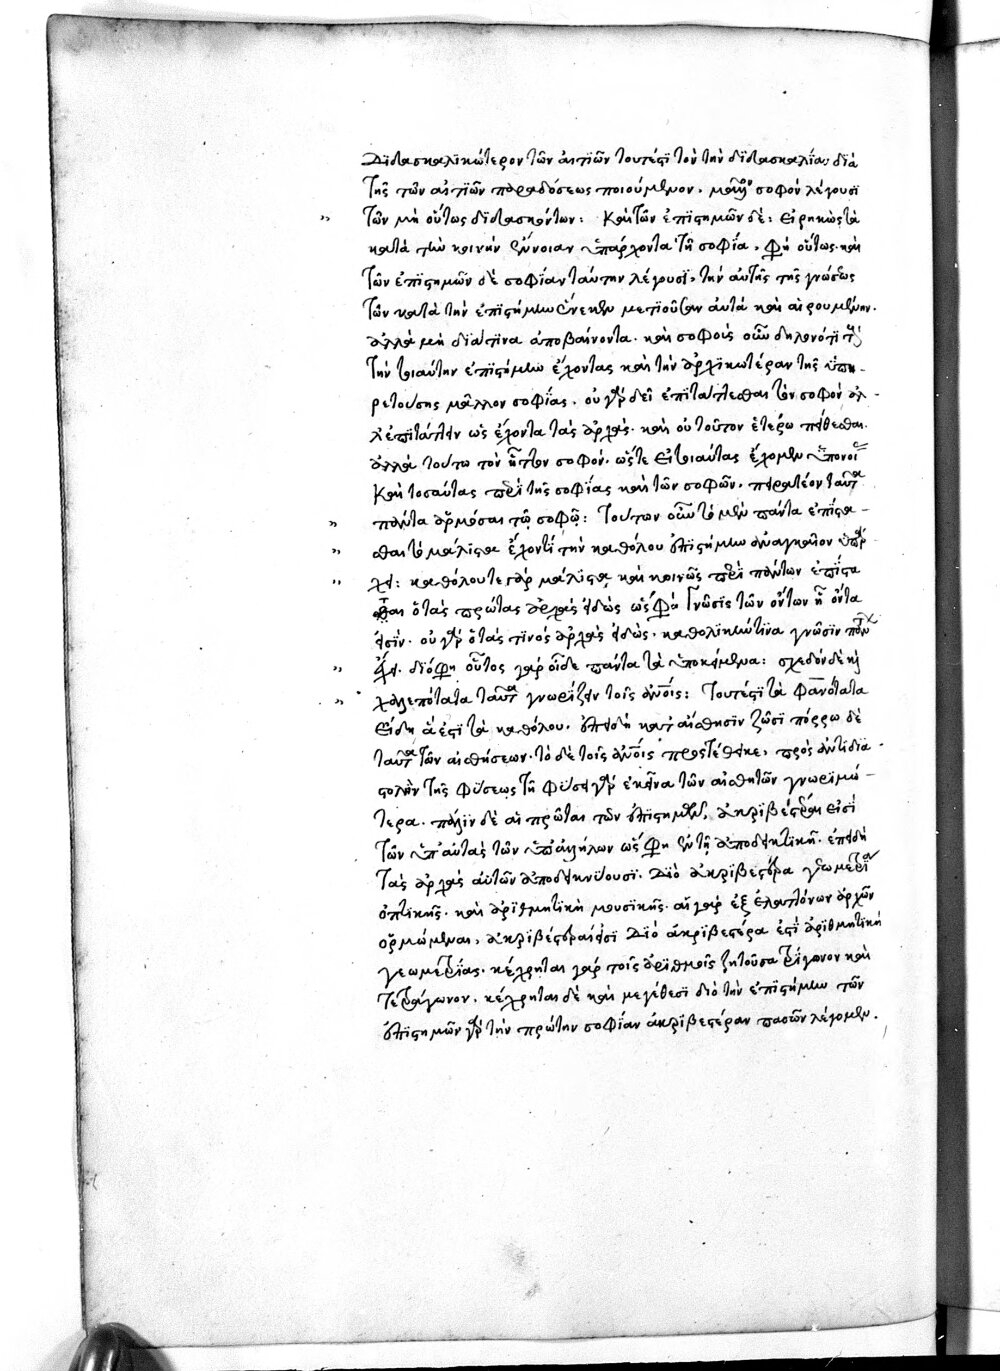 διδασκαλικώτερον τῶν αἰτιῶν τουτέστι τὸν τὴν διδασκαλίαν διὰ
τῆς τῶν αἰτιῶν παραδόσεως ποιούμενον, μᾶλλον σοφὸν λέγουσι
τῶν μὴ οὕτως διδασκόντων: Καὶ τῶν ἐπιστημῶν δέ: εἰρηκὼς τὰ
κατὰ τὴν κοινὴν ἔννοιαν ὑπάρχοντα τῇ σοφίᾳ, φησὶ οὕτως. καὶ
τῶν ἐπιστημῶν δὲ σοφίαν ταύτην λέγουσι, τὴν αὐτῆς τῆς γνώσεως
τῶν κατὰ τὴν ἐπιστήμην ἕνεκεν μετιοῦσαν αὐτὰ καὶ αἱρουμένην.
ἀλλὰ μὴ διά τινα ἀποβαίνοντα. καὶ σοφοὺς οὖν δηλονότι τοὺς
τὴν τοιαύτην ἐπιστήμην ἔχοντας καὶ τὴν ἀρχικωτέραν τῆς ὑπη-
ρετούσης μᾶλλον σοφίας. οὐ γὰρ δεῖ ἐπιτάττεσθαι τὸν σοφὸν ἀλ-
λ' ἐπιτάττειν ὡς ἔχοντα τὰς ἀρχάς. καὶ οὐ τοῦτον ἑτέρῳ πείθεσθαι.
ἀλλὰ τούτῳ τὸν ἧττον σοφόν. ὥστε εἰ τοιαύτας ἔχομεν ὑπονοίας
καὶ τοσαύτας περὶ τῆς σοφίας καὶ τῶν σοφῶν, πειρατέον ταῦτα
πάντα ἁρμόσαι τῷ σοφῷ: Τούτων οὖν τὸ μὲν πάντα ἐπίστα-
σθαι τῷ μάλιστα ἔχοντι τὴν καθόλου ἐπιστήμην ἀναγκαῖον ὑπάρ
χει: καθόλου τε γὰρ μάλιστα καὶ κοινῶς περὶ πάντων ἐπίστα
ται ὁ τὰς πρώτας ἀρχὰς εἰδὼς ὡς φησι γνῶσις τῶν ὄντων ᾗ ὄντα
εἰσίν. οὐ γὰρ ὁ τάς τινος ἀρχὰς εἰδώς. καθολικήν τινα γνῶσιν πάντων
ἔχει. διό φησι οὗτος γάρ οἶδε πάντα τὰ ὑποκείμενα: σχεδὸν δὲ καὶ
χαλεπώτατα ταῦτα γνωρίζειν τοῖς ἀνθρώποις: Τουτέστι τὰ φανότατα
εἴδη ἅ ἐστι τὰ καθόλου. ἐπειδὴ κατ' αἴσθησιν ζῶσι πόρρω δὲ
ταῦτα τῶν αἰσθήσεων. τὸ δὲ τοῖς ἀνθρώποις προστέθεικε, πρὸς ἀντιδια
στολὴν τῆς φύσεως τῇ φύσει γὰρ ἐκεῖνα τῶν αἰσθητῶν γνωριμώ-
τερα. πάλιν δὲ αἱ πρῶται τῶν ἐπιστημῶν, ἀκριβέστεραι εἰσὶ
τῶν ὑπ' αὐτὰς τῶν ὑπαλλήλων ὡς φησι ἐν τῇ ἀποδεικτικῇ. ἐπειδὴ
τὰς ἀρχὰς αὐτῶν ἀποδεικνύουσι. διὸ ἀκριβεστέρα γεωμετρία
ὀπτικῆς. καὶ ἀριθμητικὴ μουσικῆς. αἱ γὰρ ἐξ ἐλαττόνων ἀρχῶν
ὁρμώμεναι, ἀκριβέστεραί εἰσι διὸ ἀκριβεστέρα ἐστὶ ἀριθμητικὴ
γεωμετρίας. κέχρηται γάρ τοῖς ἀριθμοῖς ζητοῦσα τρίγωνον καὶ
τετράγωνον. κέχρηται δὲ καὶ μεγέθεσι διὸ τὴν ἐπιστήμην τῶν
ἐπιστημῶν γὰρ τὴν πρώτην σοφίαν ἀκριβεστέραν πασῶν λέγομεν.